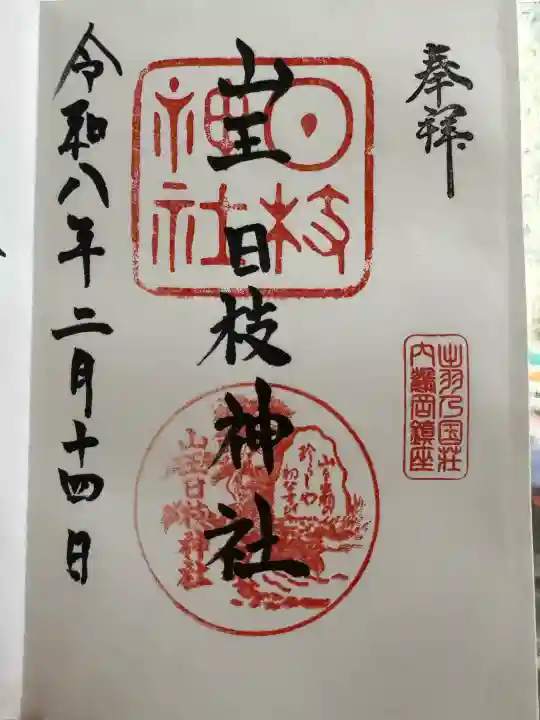 奉拝
出羽乃国荘
内鶴岡鎮座
山王日枝神社
日枝
神社
山王日枝神社
珍らしや
令和八年二月十四日